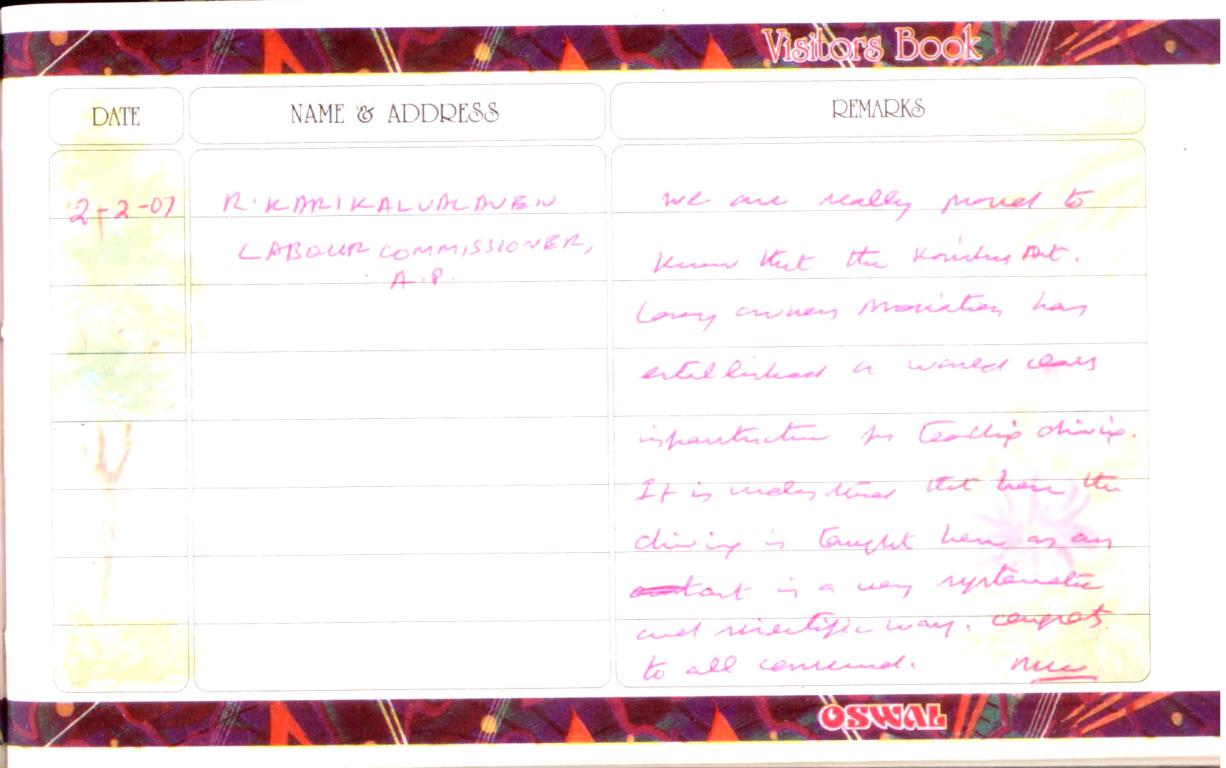 Visitors Book
DATE
NAME & ADDRESS
REMARKS
2-2-07
R. KARIKALVALAVEN
LABOUR COMMISSIONER,
A.P.
We are really proud to
know that the Krishna Dt.
Lorry owners Association has
established a world class
infrastructure for teaching driving.
It is understood that here the
driving is taught here as an
art in a very systematic
and scientific way. Congrats
to all concerned.
OSWAL